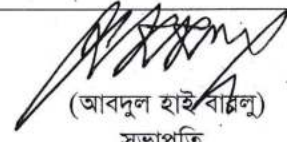 (আবদুল হাই বাবলু)
সভাপতি